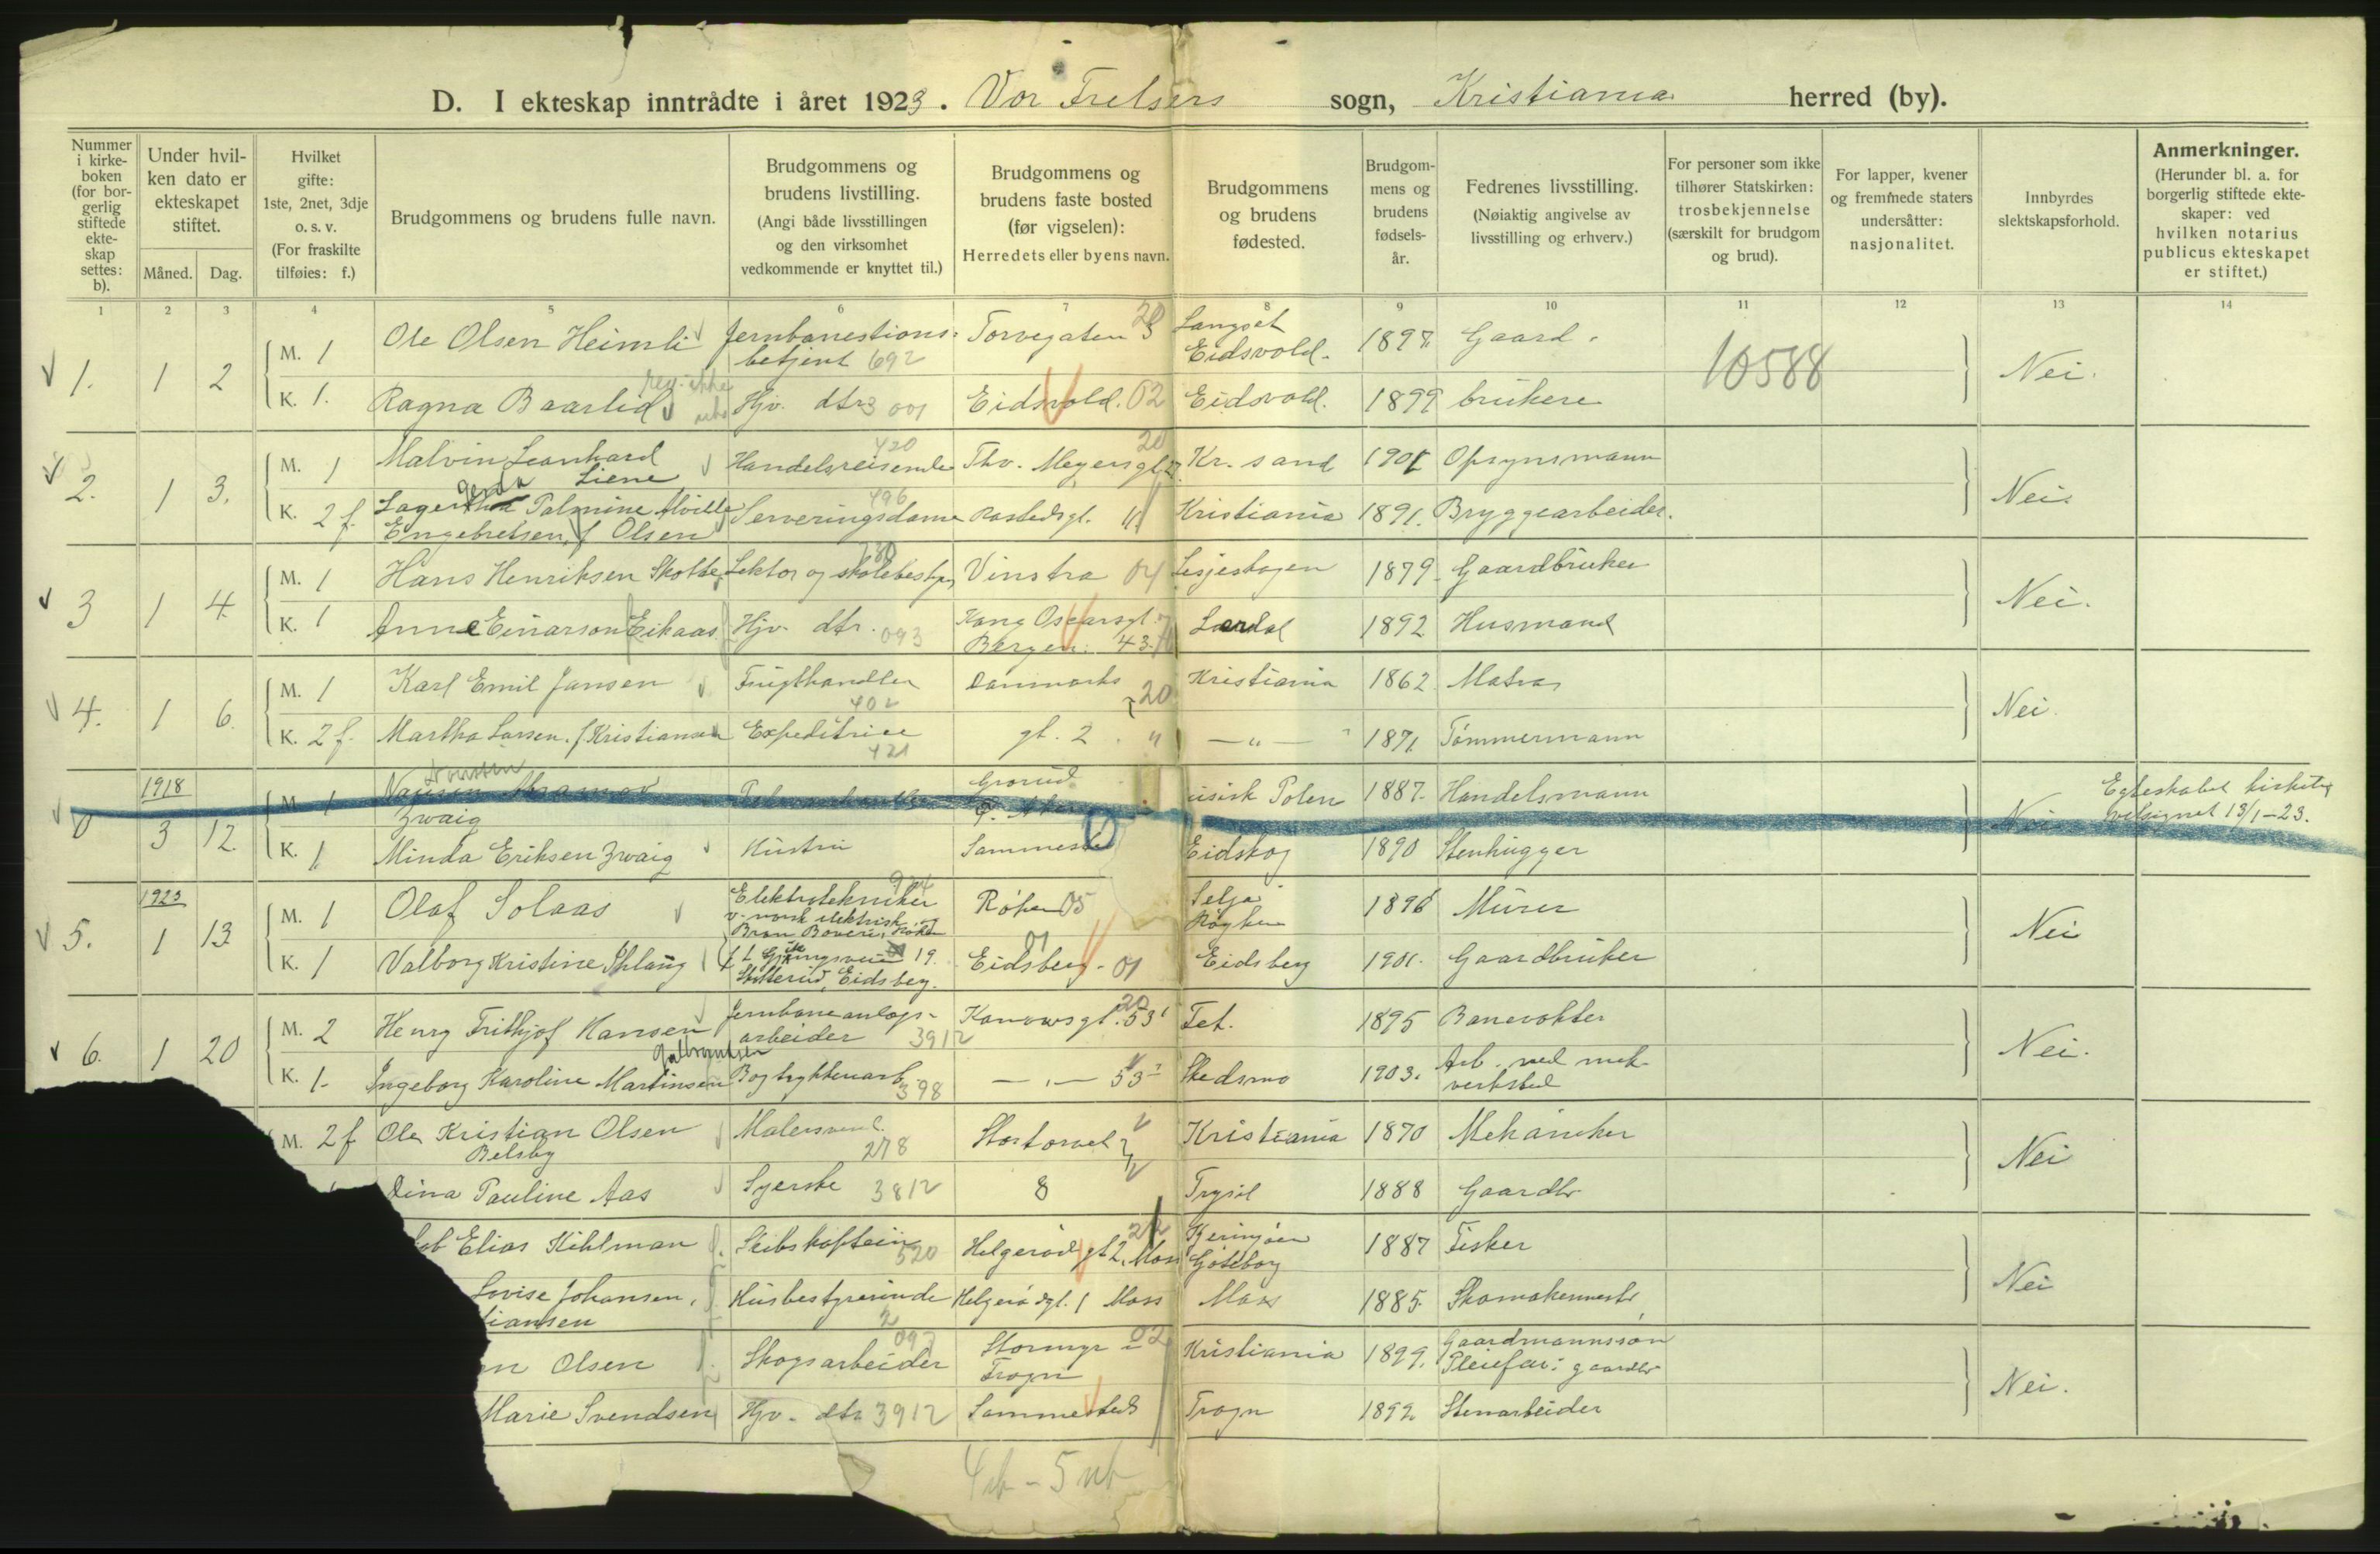 D. I ekteskap inntrådte i året 1923. Vor Frelsers sogn, Kristiania herred (by).
Nummer i kirkeboken (for borgerlig stiftede ekteskap settes: b).
Under hvilken dato er ekteskapet stiftet.
Måned. Dag.
Hvilket gifte: 1ste, 2net, 3dje o. s. v. (For fraskilte tilføies: f.)
Brudgommens og brudens fulle navn.
Brudgommens og brudens livstilling. (Angi både livsstillingen og den virksomhet vedkommende er knyttet til.)
Brudgommens og brudens faste bosted (før vigselen): Herredets eller byens navn.
Brudgommens og brudens fødested.
Brudgommens og brudens fødselsår.
Fedrenes livsstilling. (Nøiaktig angivelse av livsstilling og erhverv.)
For personer som ikke tilhører Statskirken: trosbekjennelse (særskilt for brudgom og brud).
For lapper, kvener og fremmede staters undersåtter: nasjonalitet.
Innbyrdes slektskapsforhold.
Anmerkninger. (Herunder bl. a. for borgerlig stiftede ekteskaper: ved hvilken notarius publicus ekteskapet er stiftet.)
1 2 3 4 5 6 7 8 9 10 11 12 13 14
1. 1 2 M. 1 Ole Olsen Heimli Jernbanestionsbetjent 692 Torvegaten 5 20 Langset Eidsvold. 1897. Gaard- 10588 Nei.
K. 1. Ragna Baarlid Hjv. dtr. 001 Eidsvold. 02 Eidsvold. 1899 brukere
2. 1 3. M. 1 Malvin Leonhard Liene Handelsreisende 420 Thv. Meyersgt. 20 Kr. sand 1901 Opsynsmann Nei.
K. 2 f. Lagertha Palmine Alvilde Engebretsen, f Olsen Serveringsdame 496 Rostedsgt. 11 Kristiania 1891. Bryggearbeider.
3 1 4. M. 1 Hans Henriksen Skotte Lektor og skolebestyr. Vinstra 04 Lesjeskogen 1879. Gaardbruker Nei.
K. 1 Anne Einarson Eikaas Hjv. dtr. 093 Kong Oscarsgt. Bergen. 43. Lærdal 1892 Husmand
4. 1 6. M. 1 Karl Emil Jansen Frugthandler 402 Danmarks 20 Kristiania 1862 Matros Nei.
K. 2 f. Martha Larsen. f. Kristiansen Expeditrice 421 gt. 2. — " — 1871. Tømmermann
1918
0 3 12. M. 1 Zwaig Grorud Polen 1887. Handelsmann Nei Egteskabet kirkelig velsignet 13/1-23.
K. 1 Minda Eriksen Zwaig Hustru Sammested Eidskog 1890 Stenhugger
1923
5. 1 13 M. 1 Olaf Solaas Elektrotekniker v. norsk elektrisk og Brown Boveri, Røken 05 Selja Røyken 1896 Murer Nei
K. 1 Valborg Kristine Skslaug 19. Eidsberg. Eidsberg 01 Eidsberg 1901. Gaardbruker
6. 1 20 M. 2 Henry Frithjof Hansen Jernbaneanlegs-arbeider 3912 Kanowsgt. 5 20 Fet. 1895 Banevokter Nei.
K. 1. Ingeborg Karoline Martinsen Bogtrykkerarb. 398 — " — 5 Skedsmo 1903. Arb. ved mek. verksted
M. 2 f Ole Kristian Olsen Belsby Malersvend. 278 Stortorvet Kristiania 1870 Mekaniker Nei
Dina Pauline Aas Syerske 3812 8 Trysil 1888 Gaardbr
Elias Kihlman Skibskaptein 520 Helgerødgt 2, Moss Göteborg 1887 Fisker Nei
Lovise Johansen, Husbestyrerinde Helgerødgt. 1 Moss Moss 1885. Skomakermester
Olsen Skogsarbeider Stormyr Frogn 02 Kristiania 1899. Gaardmannssøn Pleiefar: gaardbr Nei.
Marie Svendsen Hjv. dtr 3912 Sammesteds Frogn 1892 Stenarbeider